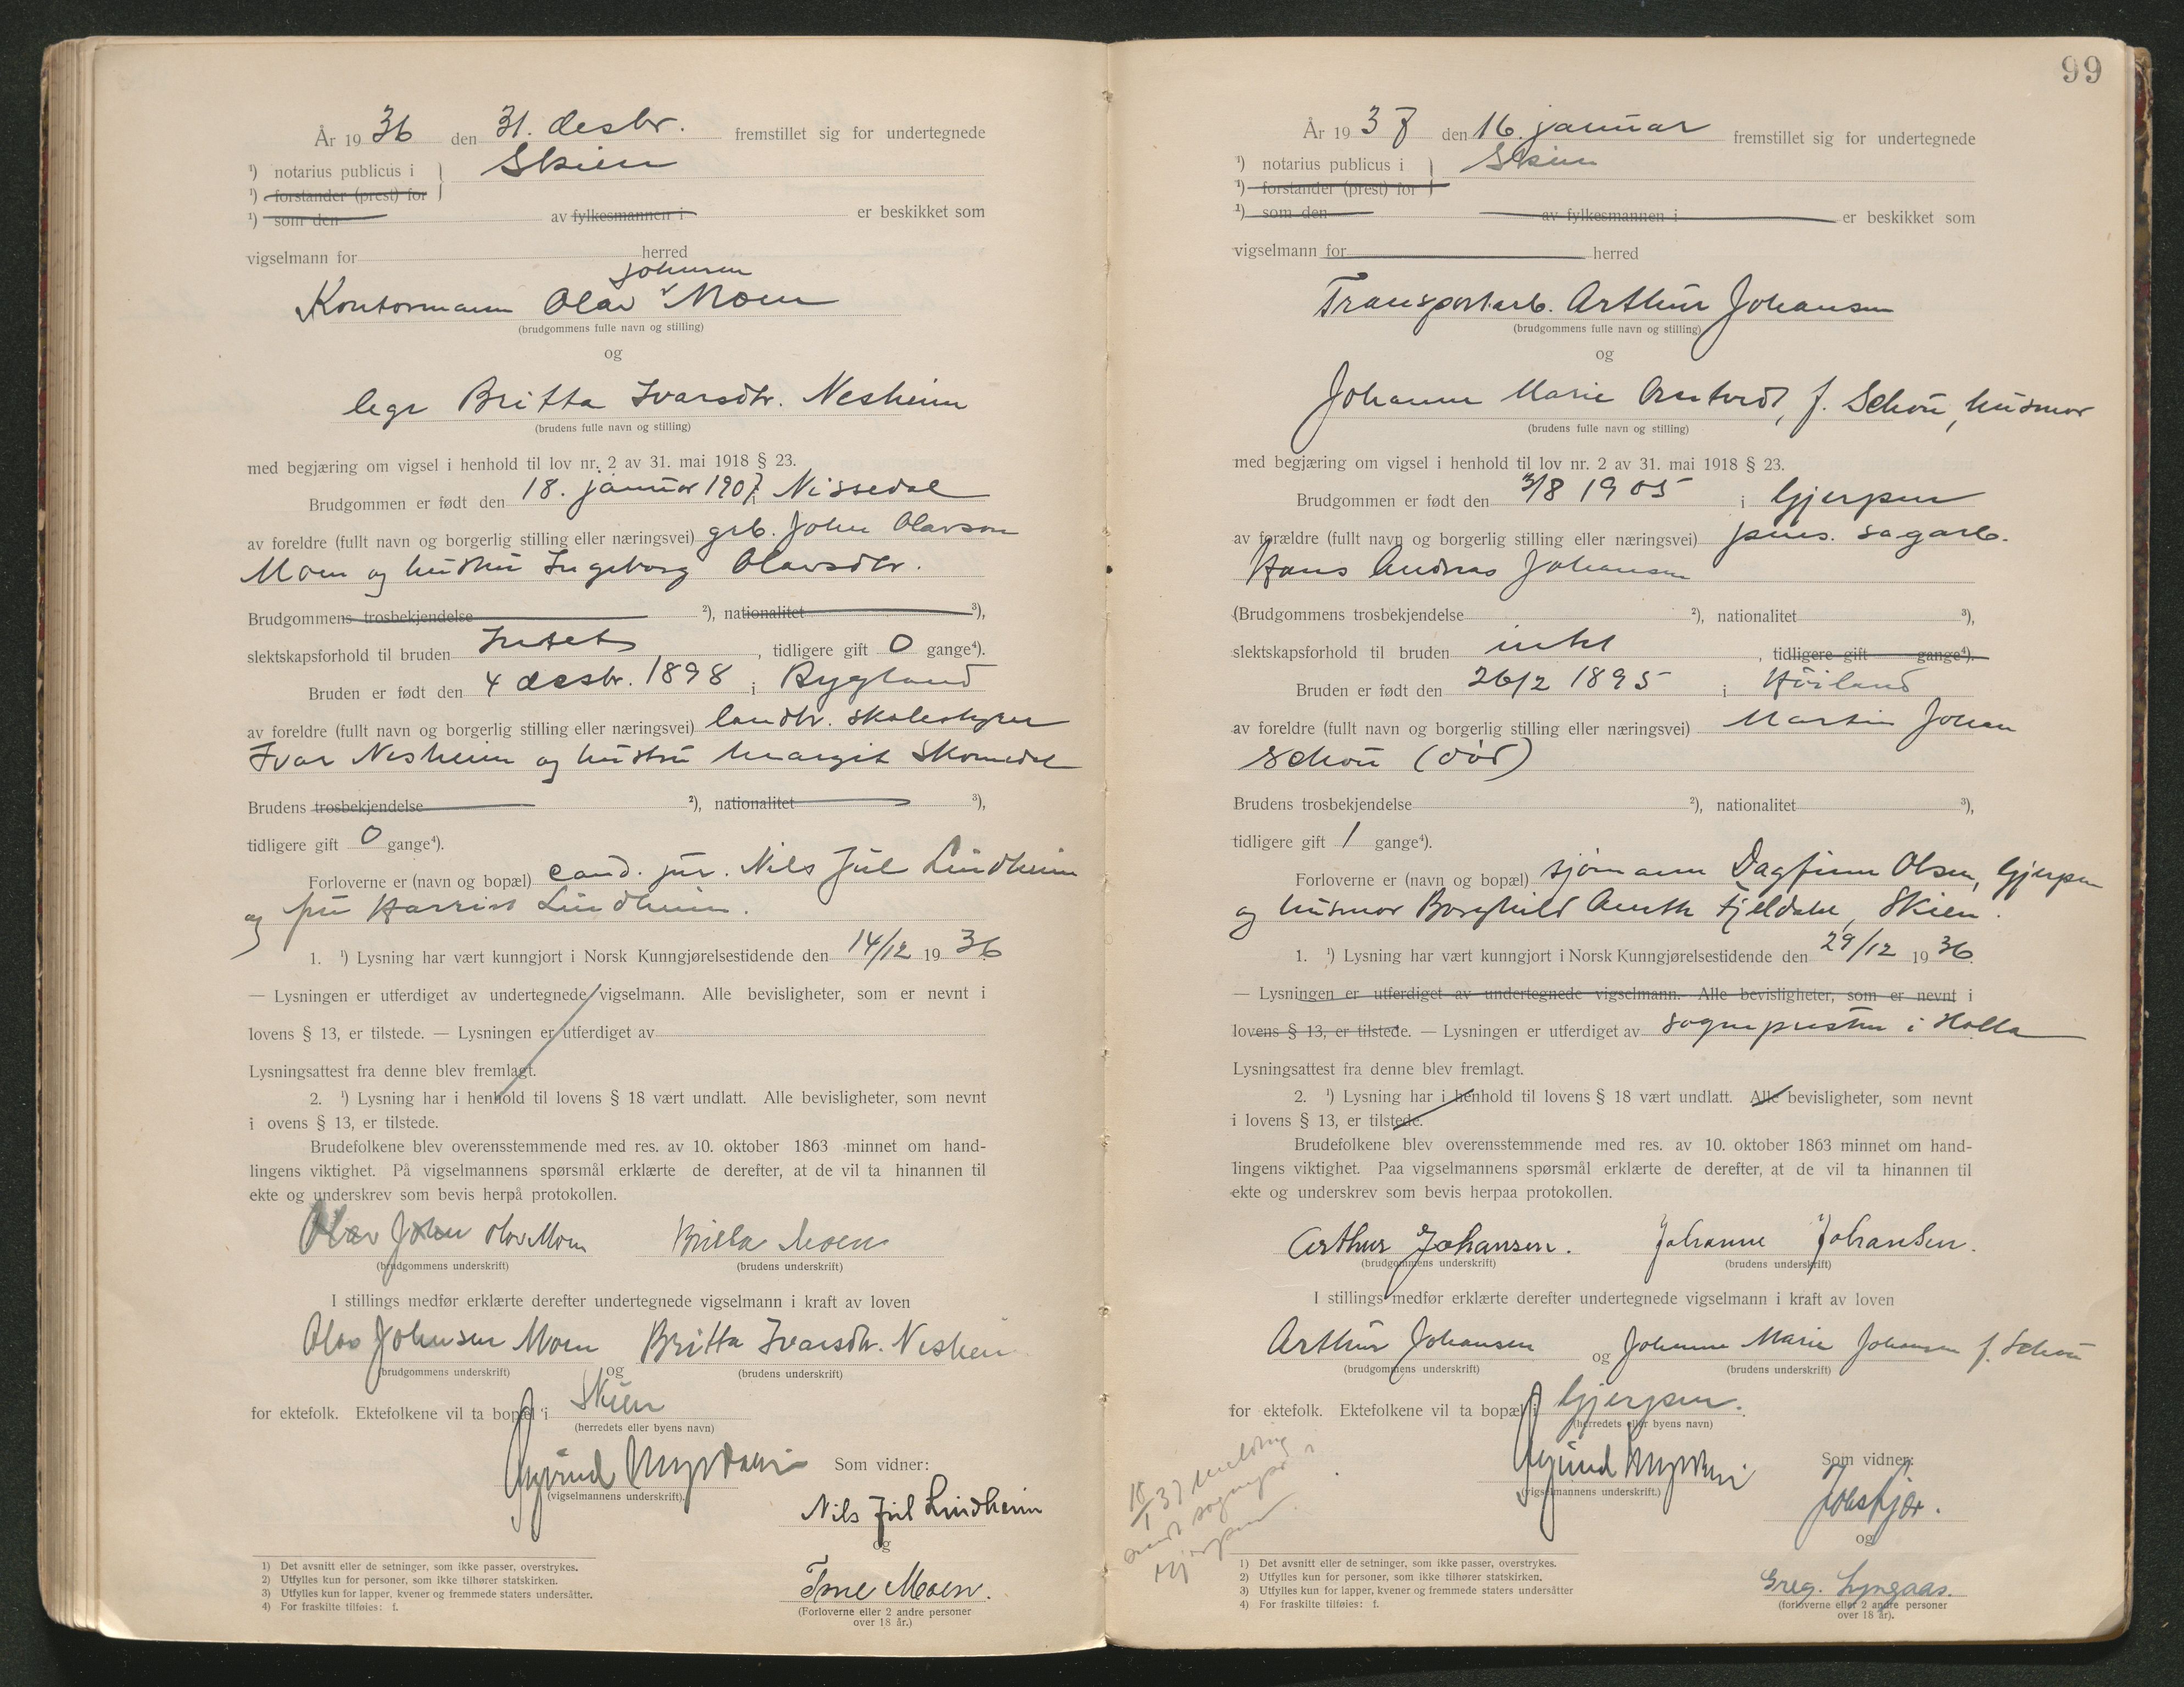 År 19 36 den 31. desbr. fremstillet sig for undertegnede
¹) notarius publicus i } Skien
¹) forstander (prest) for
¹) som den av fylkesmannen i er beskikket som
vigselmann for herred
Johnsen
Kontormann Olav Moen
(brudgommens fulle navn og stilling)
og
lege Britta Ivarsdtr. Nesheim
(brudens fulle navn og stilling)
med begjæring om vigsel i henhold til lov nr. 2 av 31. mai 1918 § 23.
Brudgommen er født den 18. januar 1907 i Nissedal
av foreldre (fullt navn og borgerlig stilling eller næringsvei) grb. John Olavson
Moen og hustru Ingeborg Olavsdtr.
Brudgommens trosbekjendelse ²), nationalitet ³),
slektskapsforhold til bruden Intet, tidligere gift 0 gange⁴).
Bruden er født den 4 desbr. 1898 i Bygland
av foreldre (fullt navn og borgerlig stilling eller næringsvei) landbr. skolestyrer
Ivar Nesheim og hustru Margit Skomedal
Brudens trosbekjendelse ²), nationalitet ³),
tidligere gift 0 gange⁴).
Forloverne er (navn og bopæl) cand. jur. Nils Juul Lindheim
og fru Harriet Lindheim.
1. ¹) Lysning har vært kunngjort i Norsk Kunngjørelsestidende den 14/12 1936
— Lysningen er utferdiget av undertegnede vigselmann. Alle bevisligheter, som er nevnt i
lovens § 13, er tilstede. — Lysningen er utferdiget av
Lysningsattest fra denne blev fremlagt.
2. ¹) Lysning har i henhold til lovens § 18 vært undlatt. Alle bevisligheter, som nevnt
i ovens § 13, er tilstede.
Brudefolkene blev overensstemmende med res. av 10. oktober 1863 minnet om hand-
lingens viktighet. På vigselmannens spørsmål erklærte de derefter, at de vil ta hinannen til
ekte og underskrev som bevis herpå protokollen.
Olav John Olav Moen Britta Moen
(brudgommens underskrift) (brudens underskrift)
I stillings medfør erklærte derefter undertegnede vigselmann i kraft av loven
Olav Johnsen Moen Britta Ivarsdtr. Nesheim
(brudgommens underskrift) og (brudens underskrift)
for ektefolk. Ektefolkene vil ta bopæl i Skien
(herredets eller byens navn)
Som vidner:
(vigselmannens underskrift).
Nils Juul Lindheim
og
Tone Moen.
(Forloverne eller 2 andre personer
over 18 år.)
1) Det avsnitt eller de setninger, som ikke passer, overstrykes.
2) Utfylles kun for personer, som ikke tilhører statskirken.
3) Utfylles kun for lapper, kvener og fremmede staters undersåtter.
4) For fraskilte tilføies: f.
99
År 19 37 den 16. januar fremstillet sig for undertegnede
¹) notarius publicus i } Skien
¹) forstander (prest) for
¹) som den av fylkesmannen i er beskikket som
vigselmann for herred
Transportarb. Arthur Johansen
(brudgommens fulle navn og stilling)
og
Johanne Marie f. Schou, husmor
(brudens fulle navn og stilling)
med begjæring om vigsel i henhold til lov nr. 2 av 31. mai 1918 § 23.
Brudgommen er født den 3/8 1905 i Gjerpen
av forældre (fullt navn og borgerlig stilling eller næringsvei) pens. sagarb.
Hans Andreas Johansen
(Brudgommens trosbekjendelse ²), nationalitet ³),
slektskapsforhold til bruden intet, tidligere gift gange⁴).
Bruden er født den 26/2 1895 i Höiland
av foreldre (fullt navn og borgerlig stilling eller næringsvei) Martin Johan
Schou (död)
Brudens trosbekjendelse ²), nationalitet ³),
tidligere gift 1 gange⁴).
Forloverne er (navn og bopæl) sjömann Dagfinn Olsen, Gjerpen
og husmor Borghild Fjeldale, Skien.
1. ¹) Lysning har vært kunngjort i Norsk Kunngjørelsestidende den 29/12 1936.
— Lysningen er utferdiget av undertegnede vigselmann. Alle bevisligheter, som er nevnt i
lovens § 13, er tilstede. — Lysningen er utferdiget av sognepresten i Holla
Lysningsattest fra denne blev fremlagt.
2. ¹) Lysning har i henhold til lovens § 18 vært undlatt. Alle bevisligheter, som nevnt
i lovens § 13, er tilstede.
Brudefolkene blev overensstemmende med res. av 10. oktober 1863 minnet om hand-
lingens viktighet. Paa vigselmannens spørsmål erklærte de derefter, at de vil ta hinannen til
ekte og underskrev som bevis herpaa protokollen.
Arthur Johansen. Johanne Johansen.
(brudgommens underskrift) (brudens underskrift)
I stillings medfør erklærte derefter undertegnede vigselmann i kraft av loven
Arthur Johansen og Johanne Marie Johansen f. Schou
(brudgommens underskrift) (brudens underskrift)
for ektefolk. Ektefolkene vil ta bopæl i Gjerpen.
(herredets eller byens navn)
Som vidner:
(vigselmannens underskrift.)
og
Greg. Lyngaas.
(forloverne eller 2 andre personer
over 18 år).
18/1 37 melding
sendt sognepr i
Gjerpen.
1) Det avsnitt eller de setninger, som ikke passer, overstrykes.
2) Utfylles kun for personer, som ikke tilhører statskirken.
3) Utfylles kun for lapper, kvener og fremmede staters undersåtter
4) For fraskilte tilføies: f.